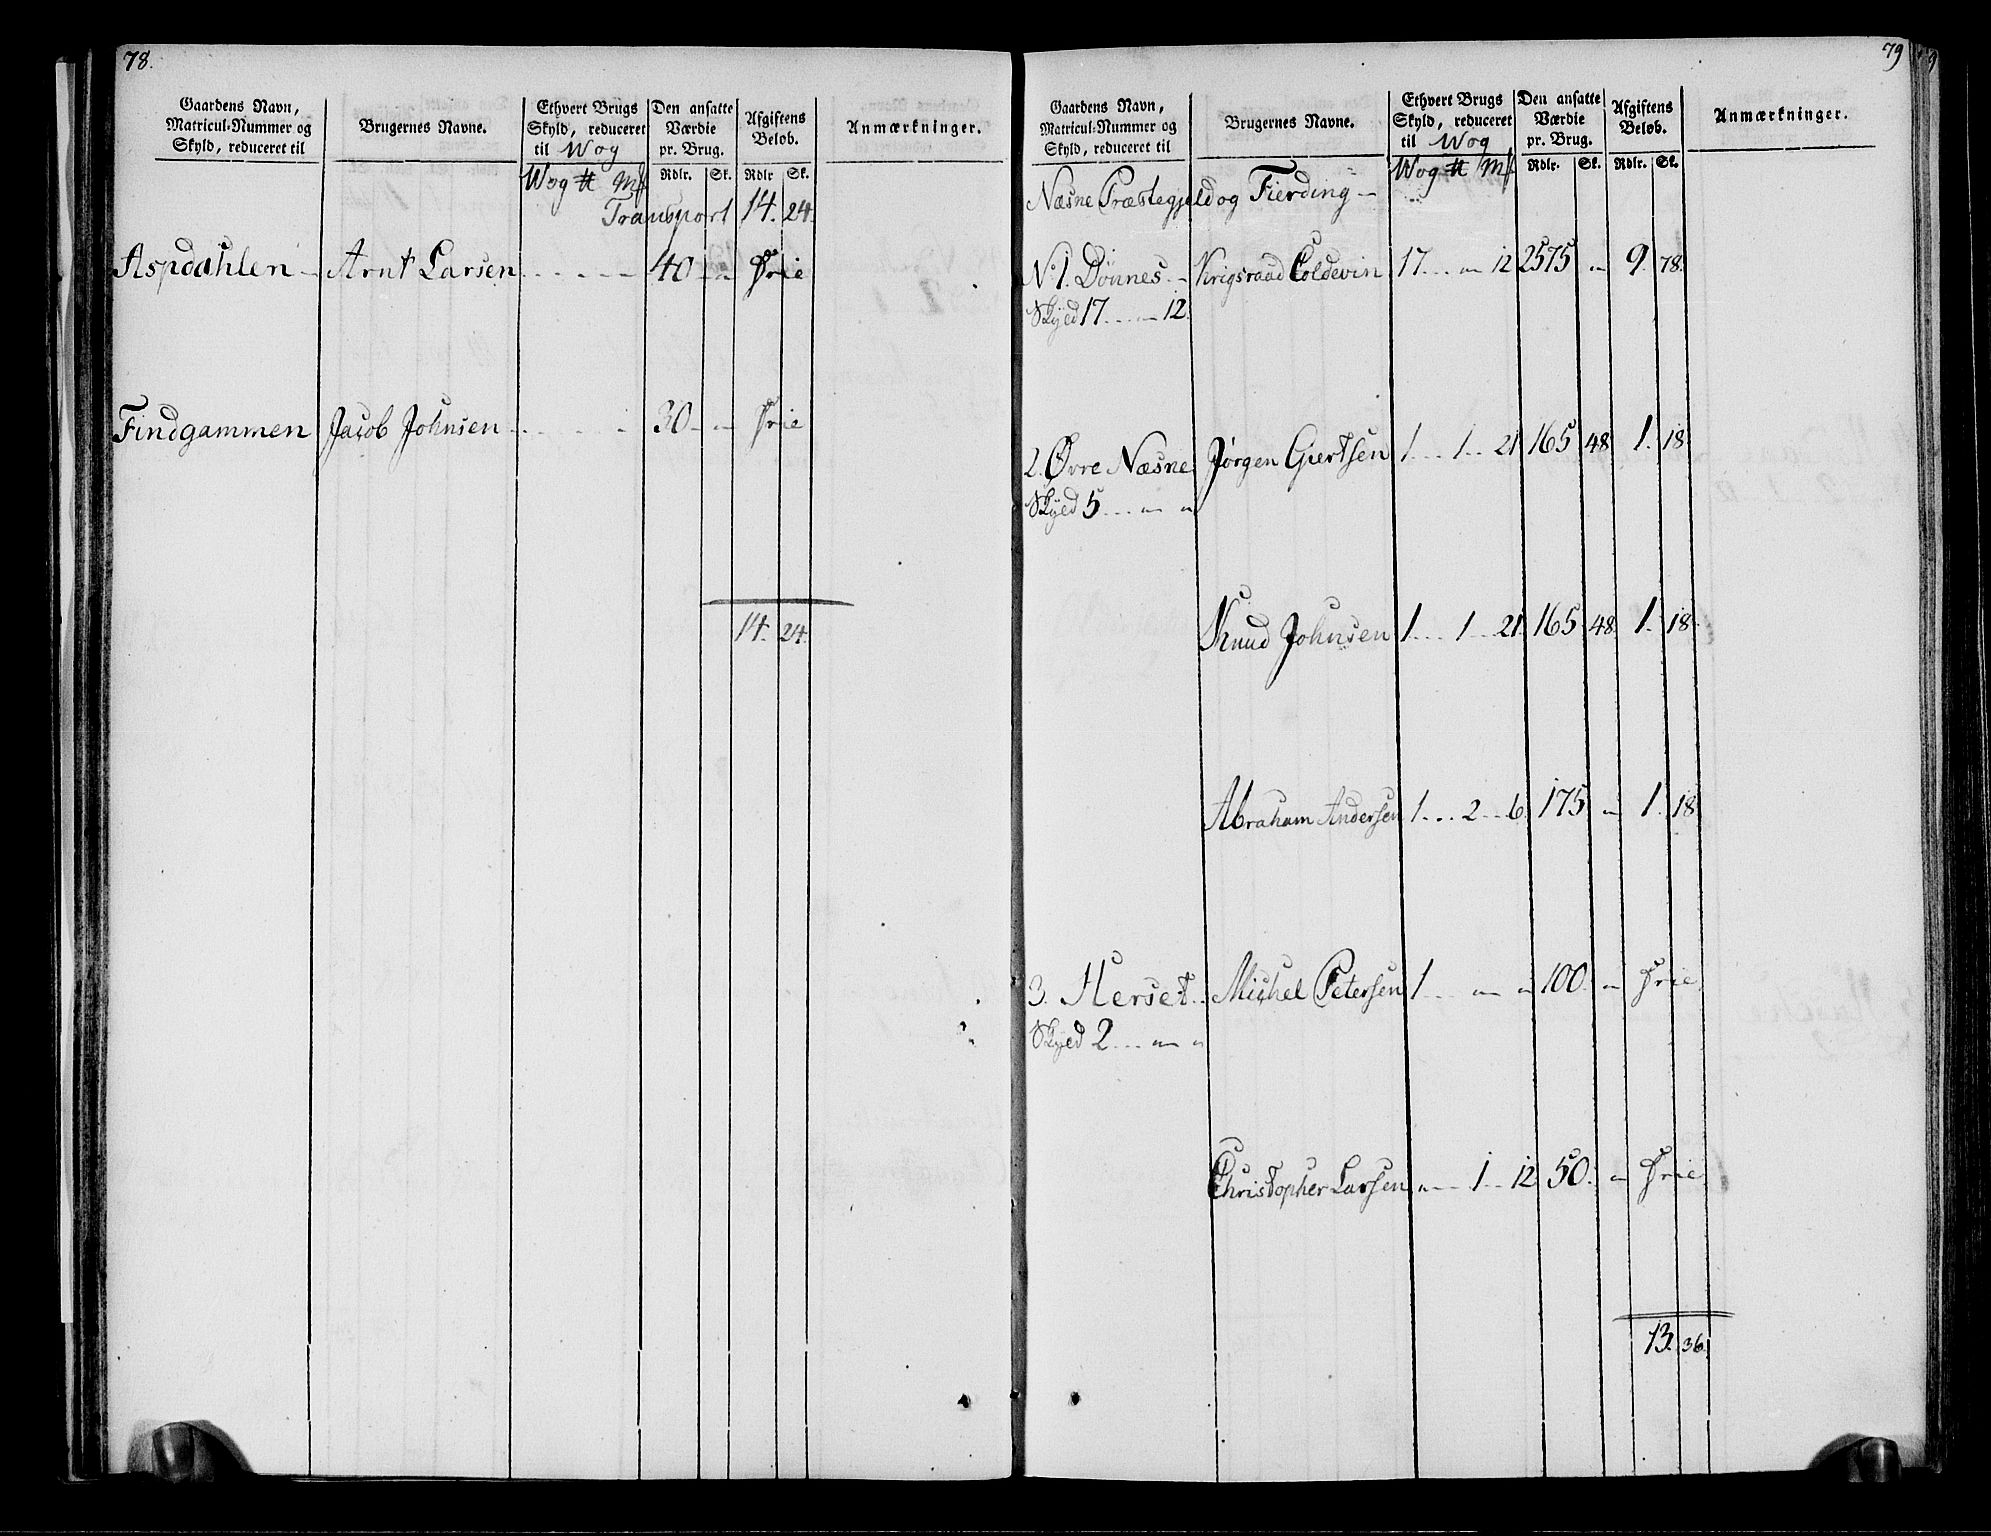 78.
Gaardens Navn, Matricul-Nummer og Skyld, reduceret til
Brugernes Navne.
Ethvert Brugs Skyld, reduceret til Wog
Den ansatte Værdie pr. Brug.
Afgiftens Beløb.
Anmærkninger.
Wog ## Mk Rdlr. Sk. Rdlr Sk.
Transport 14. 24.
Aspdahlen - Arnt Larsen 40 - " Frie
Findgammen Jacob Johnsen 30 - " Frie
14. 24.
79
Gaardens Navn, Matricul-Nummer og Skyld, reduceret til
Brugernes Navne.
Ethvert Brugs Skyld, reduceret til Wog
Den ansatte Værdie pr. Brug.
Afgiftens Beløb.
Anmærkninger.
Wog ## Mk Rdlr. Sk. Rdlr. Sk.
Næsne Præstegjeld og Fierding -
No 1. Dønnes. - Krigsraad Coldevin 17 " 12 2575 " 9. 78.
Skyld 17 - 12.
2. Øvre Næsne Jørgen Giertsen 1 1 21 165 48 1. 18
Skyld 5 " "
Knud Johnsen 1 1 21 165 48 1. 18
Abraham Andersen 1 2 6 175 " 1. 18
3. Herset Michel Petersen 1 " " 100 " Frie
Skyld 2 " "
Christopher Larsen " 1 12 50. " Frie
13. 36.